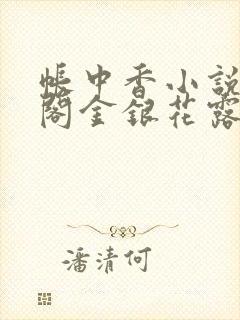 帳中香小說
閣金銀花露
潘清何